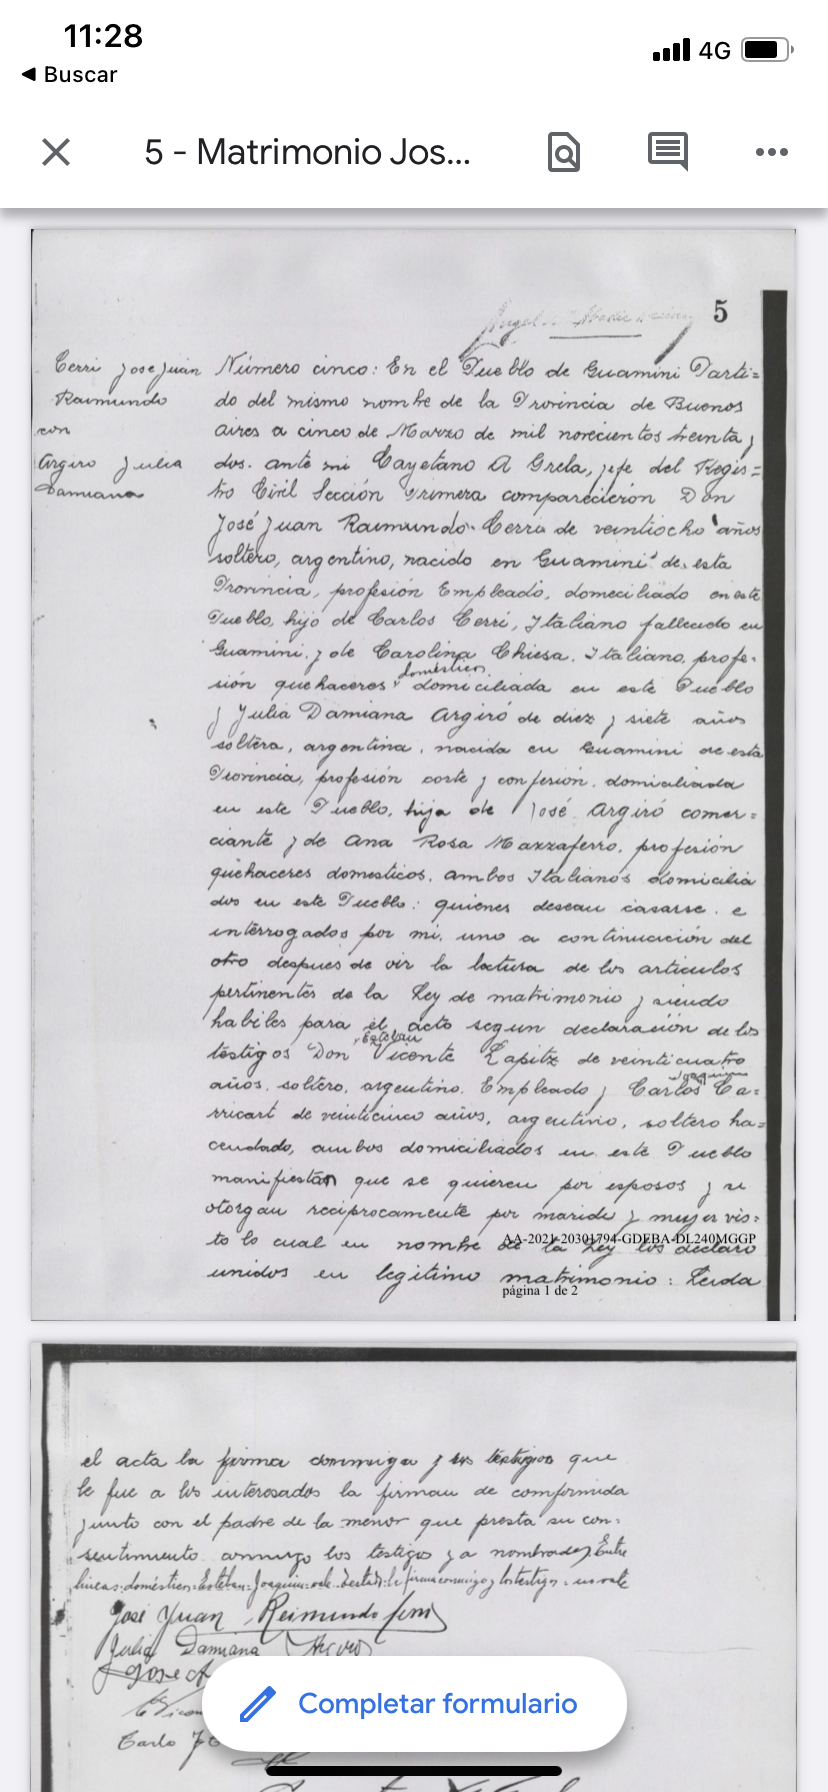 11:28
4G
Buscar
5 - Matrimonio Jos...
5
Cerri José Juan
Raimundo
con
Argiro Julia
Damiana
Número cinco: En el Pueblo de Guamini Parti=
do del mismo nombre de la Provincia de Buenos
Aires a cinco de Marzo de mil novecientos treinta y
dos. ante mi Cayetano A Grela, jefe del Regis=
tro Civil Sección Primera comparecieron Don
José Juan Raimundo Cerri de veintiocho años
soltero, argentino, nacido en Guamini de esta
Provincia, profesión Empleado, domeciliado en este
Pueblo, hijo de Carlos Cerri, Italiano fallecido en
Guamini, y de Carolina Chiesa. Italiano, profe-
domésticos
sión quehaceres domiciliada en este Pueblo
y Yulia Damiana Argiró de diez y siete años
soltera, argentina, nacida en Guamini de esta
Provincia, profesión corte y confesión. domiciliada
en este Pueblo, hija de José Argiró comer=
ciante y de Ana Rosa Mazzaferro, profesión
quehaceres domesticos, ambos Italianos domicilia
dos en este Pueblo: quienes desean casarse. e
interrogados por mi, uno a continuación del
otro despues de oir la lectura de los articulos
pertinentes de la Ley de matrimonio y siendo
habiles para el acto segun declaración de los
Esteban
testigos Don Vicente Lapitz de veinticuatro
Joaquin
años, soltero, argentino. Empleado y Carlos Ca=
rricart de veinticinco años, argentino, soltero ha=
cendado, ambos domiciliados en este Pueblo
manifiestan que se quieren por esposos y se
otorgan reciprocamente por marido y mujer vis=
to lo cual en nombre de la Ley los declaro
AA-2021-20301794-GDEBA-DL240MGGP
unidos en legitimo matrimonio: Leida
página 1 de 2
el acta la firma conmigo y los testigos que
le fue a los interesados la firman de comformida
junto con el padre de la menor que presta su con=
sentimiento conmigo los testigos ya nombrados Entre
lineas: domésticos: Esteban: Joaquin: vale. Testado: la firma conmigo y los testigos: no vale
José Juan Reimundo Cerri
Julia Damiana Argiro
Jose A
Carlo J
Completar formulario